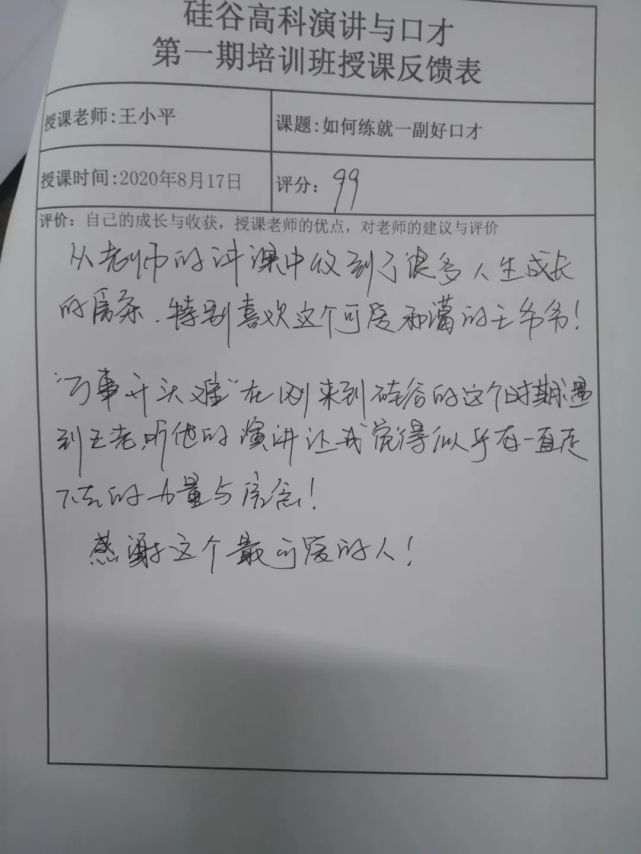 硅谷高科演讲与口才
第一期培训班授课反馈表
授课老师:王小平
课题:如何练就一副好口才
授课时间:2020年8月17日
评分: 99
评价: 自己的成长与收获，授课老师的优点，对老师的建议与评价
从老师的讲课中收到了很多人生成长
的 特别喜欢这个可爱 的王爷爷!
"万事开头难"在刚来到硅谷的这个时期遇
到王老 听他的演讲让我觉得似乎有一直走
下去的力量与信念!
感谢这个最可爱的人!